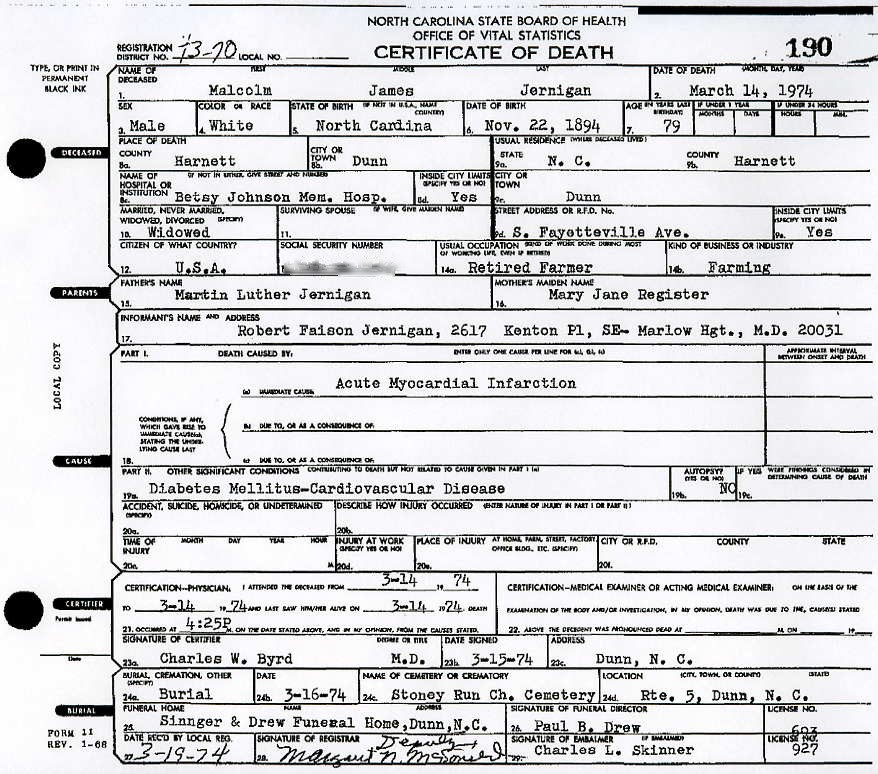 NORTH CAROLINA STATE BOARD OF HEALTH
OFFICE OF VITAL STATISTICS
CERTIFICATE OF DEATH
190
REGISTRATION DISTRICT NO. 43-70 LOCAL NO.
TYPE, OR PRINT IN PERMANENT BLACK INK
NAME OF DECEASED FIRST MIDDLE LAST DATE OF DEATH (MONTH, DAY, YEAR)
1. Malcolm James Jernigan 2. March 14, 1974
SEX COLOR OR RACE STATE OF BIRTH (IF NOT IN U.S.A., NAME COUNTRY) DATE OF BIRTH AGE (IN YEARS LAST BIRTHDAY) IF UNDER 1 YEAR MONTHS DAYS IF UNDER 24 HOURS HOURS MIN.
3. Male 4. White 5. North Cardina 6. Nov. 22, 1894 7. 79
DECEASED
PLACE OF DEATH USUAL RESIDENCE (WHERE DECEASED LIVED)
COUNTY CITY OR TOWN STATE COUNTY
8a. Harnett 8b. Dunn 9a. N. C. 9b. Harnett
NAME OF HOSPITAL OR INSTITUTION (IF NOT IN EITHER, GIVE STREET AND NUMBER) INSIDE CITY LIMITS (SPECIFY YES OR NO) CITY OR TOWN
8c. Betsy Johnson Mem. Hosp. 8d. Yes 9c. Dunn
MARRIED, NEVER MARRIED, WIDOWED, DIVORCED (SPECIFY) SURVIVING SPOUSE (IF WIFE, GIVE MAIDEN NAME) STREET ADDRESS OR R.F.D. No. INSIDE CITY LIMITS (SPECIFY YES OR NO)
10. Widowed 11. 9d. S. Fayetteville Ave. 9e. Yes
CITIZEN OF WHAT COUNTRY? SOCIAL SECURITY NUMBER USUAL OCCUPATION (KIND OF WORK DONE DURING MOST OF WORKING LIFE, EVEN IF RETIRED) KIND OF BUSINESS OR INDUSTRY
12. U.S.A. 14a. Retired Farmer 14b. Farming
PARENTS
FATHER'S NAME MOTHER'S MAIDEN NAME
15. Martin Luther Jernigan 16. Mary Jane Register
INFORMANT'S NAME AND ADDRESS
17. Robert Faison Jernigan, 2617 Kenton Pl, SE- Marlow Hgt., M.D. 20031
LOCAL COPY
PART I. DEATH CAUSED BY: ENTER ONLY ONE CAUSE PER LINE FOR (a), (b), (c) APPROXIMATE INTERVAL BETWEEN ONSET AND DEATH
(a) IMMEDIATE CAUSE Acute Myocardial Infarction
CONDITIONS, IF ANY, WHICH GAVE RISE TO IMMEDIATE CAUSE(a), STATING THE UNDERLYING CAUSE LAST
(b) DUE TO, OR AS A CONSEQUENCE OF:
CAUSE
18. (c) DUE TO, OR AS A CONSEQUENCE OF:
PART II. OTHER SIGNIFICANT CONDITIONS CONTRIBUTING TO DEATH BUT NOT RELATED TO CAUSE GIVEN IN PART I (a) AUTOPSY? (YES OR NO) IF YES WERE FINDINGS CONSIDERED IN DETERMINING CAUSE OF DEATH
19a. Diabetes Mellitus-Cardiovascular Disease 19b. NO 19c.
ACCIDENT, SUICIDE, HOMICIDE, OR UNDETERMINED (SPECIFY) DESCRIBE HOW INJURY OCCURRED (ENTER NATURE OF INJURY IN PART I OR PART II)
20a. 20b.
TIME OF INJURY MONTH DAY YEAR HOUR INJURY AT WORK (SPECIFY YES OR NO) PLACE OF INJURY AT HOME, FARM, STREET, FACTORY, OFFICE BLDG., ETC. (SPECIFY) CITY OR R.F.D. COUNTY STATE
20c. M. 20d. 20e. 20f.
CERTIFIER
Permit issued
Date
CERTIFICATION—PHYSICIAN: I ATTENDED THE DECEASED FROM 3-14 19 74
TO 3-14 19 74 AND LAST SAW HIM/HER ALIVE ON 3-14 19 74. DEATH
21. OCCURRED AT 4:25P M. ON THE DATE STATED ABOVE, AND IN MY OPINION, FROM THE CAUSES STATED.
CERTIFICATION—MEDICAL EXAMINER OR ACTING MEDICAL EXAMINER: ON THE BASIS OF THE
EXAMINATION OF THE BODY AND/OR INVESTIGATION, IN MY OPINION, DEATH WAS DUE TO THE, CAUSE(S) STATED
22. ABOVE THE DECEDENT WAS PRONOUNCED DEAD AT M, ON 19
SIGNATURE OF CERTIFIER DEGREE OR TITLE DATE SIGNED ADDRESS
23a. Charles W. Byrd M.D. 23b. 3-15-74 23c. Dunn, N. C.
BURIAL, CREMATION, OTHER (SPECIFY) DATE NAME OF CEMETERY OR CREMATORY LOCATION (CITY, TOWN, OR COUNTY) (STATE)
24a. Burial 24b. 3-16-74 24c. Stoney Run Ch. Cemetery 24d. Rte. 5, Dunn, N. C.
BURIAL
FUNERAL HOME NAME ADDRESS SIGNATURE OF FUNERAL DIRECTOR LICENSE NO.
25. Sinnger & Drew Funeral Home,Dunn,N.C. 26. Paul B. Drew 603
FORM 11
REV. 1-68
DATE REC'D BY LOCAL REG. SIGNATURE OF REGISTRAR SIGNATURE OF EMBALMER (IF EMBALMED) LICENSE NO.
27. 3-19-74 28. Margaret N. McDonald Deputy 29. Charles L. Skinner 927